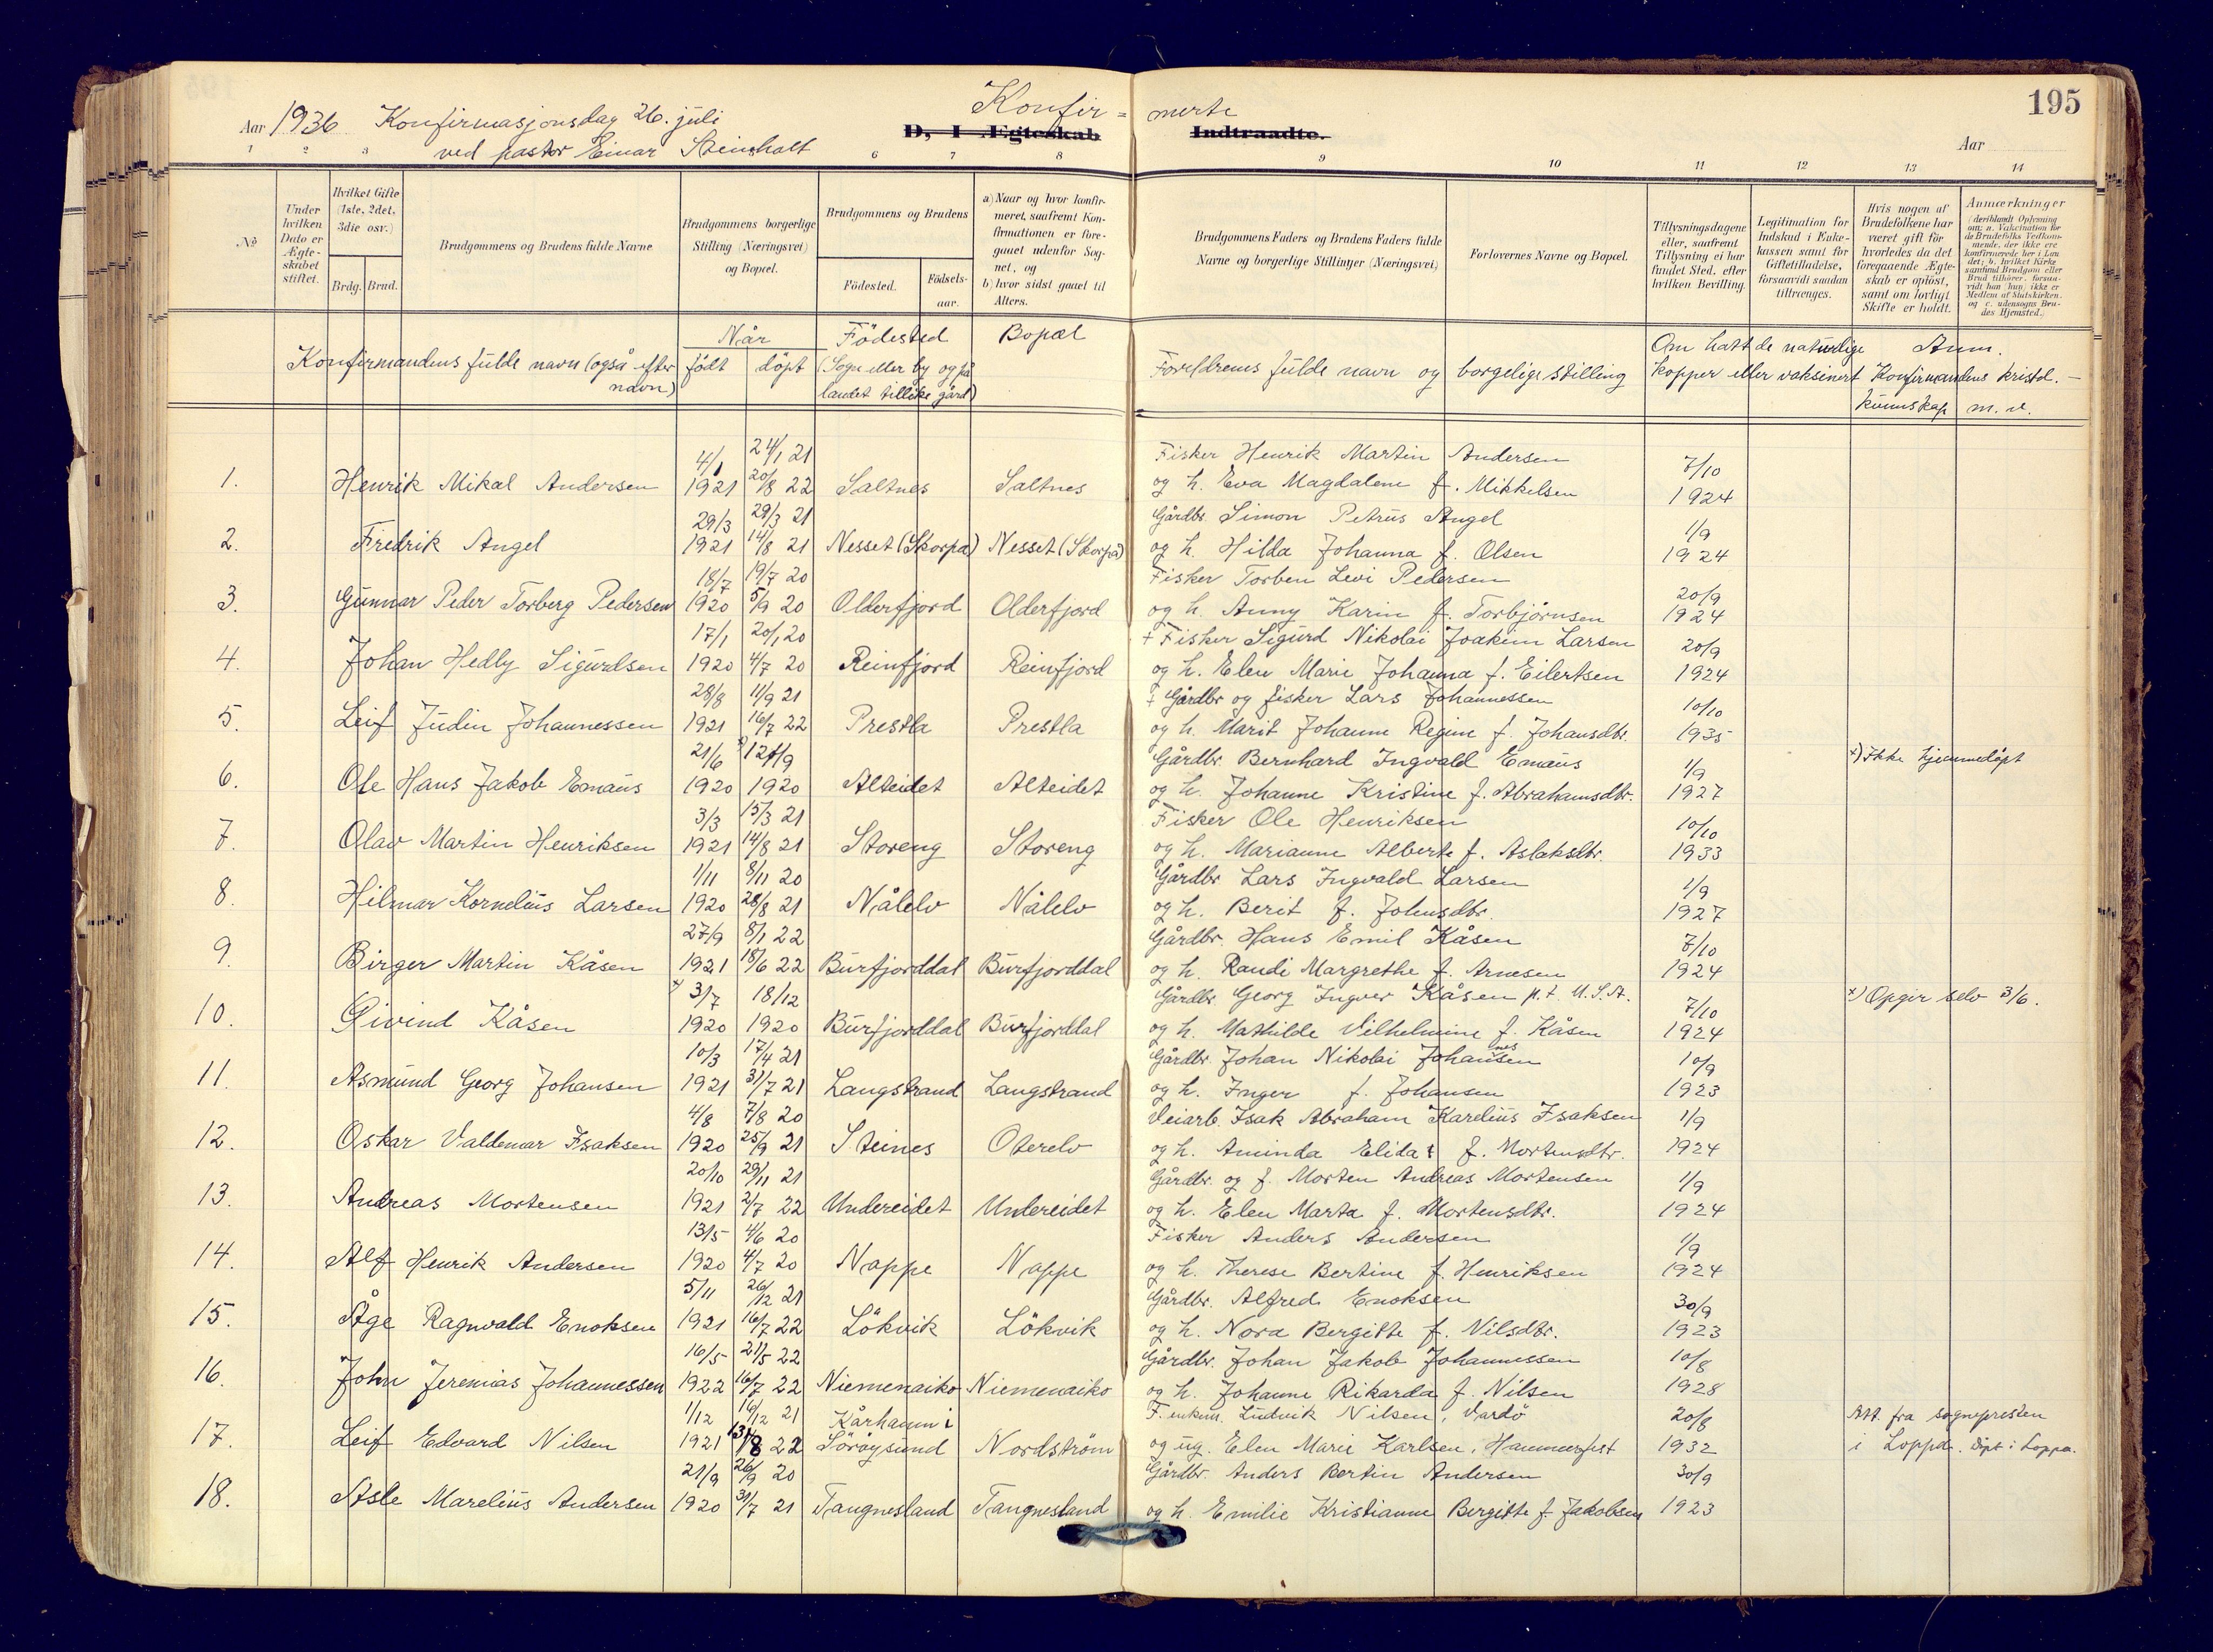 195
Aar 1936 Konfirmasjonsdag 26. juli
ved pastor Einar Steinsholt
Konfir= merte
D, I Ægteskab Indtraadte.
Aar
1 2 3 6 7 8 9 10 11 12 13 14
№
Under hvilken Dato er Ægte-skabet stiftet.
Hvilket Gifte (1ste, 2det, 3die osv.)
Brdg. Brud.
Brudgommens og Brudens fulde Navne
Brudgommens borgerlige Stilling (Næringsvei) og Bopæl.
Brudgommens og Brudens
Födested. Födsels-aar.
a) Naar og hvor konfir-meret, saafremt Kon-firmationen er fore-gaaet udenfor Sog-net, og
b) hvor sidst gaaet til Alters.
Brudgommens Faders og Brudens Faders fulde Navne og borgerlige Stillinger (Næringsvei)
Forlovernes Navne og Bopæl.
Tillysningsdagene eller, saafremt Tillysning ei har fundet Sted, efter hvilken Bevilling.
Legitimation for Indskud i Enke-kassen samt for Giftetilladelse, forsaavidt saadan tiltrænges.
Hvis nogen af Brudefolkene har været gift før hvorledes da det foregaaende Ægte-skab er opløst, samt om lovligt Skifte er holdt.
Anmærkninger
(deriblandt Oplysning om: a. Vakcination for de Brudefolks Vedkom-mende, der ikke ere konfirmerede her i Lan-det; b. hvilket Kirke-samfund Brudgom eller Brud tilhører, forsaa-vidt han (hun) ikke er Medlem af Statskirken, og c. udensogns Bru-des Hjemsted.)
Konfirmandens fulde navn (også efter navn)
Når
født døpt
Födested
(Sogn eller by og på landet tillike gård)
Bopæl
Foreldrenes fulde navn og borgelige stilling
Om hatt de naturlige kopper eller vaksinert
Anm.
Konfirmandens kristd.-kunnskap m. v.
1. Henrik Mikal Andersen 4/1 1921 24/1 21 20/8 22 Saltnes Saltnes Fisker Henrik Martin Andersen
og h. Eva Magdalene f. Mikkelsen 7/10 1924
2. Fredrik Angel 29/3 1921 29/3 21 14/8 21 Nesset (Skorpa) Nesset (Skorpa) Gårdbr. Simon Petrus Angel
og h. Hilda Johanna f. Olsen 1/9 1924
3. Gunnar Peder Torberg Pedersen 18/7 1920 19/7 20 5/9 20 Olderfjord Olderfjord Fisker Torben Levi Pedersen
og h. Anny Karin f. Torbjørnsen 20/9 1924
4. Johan Hedly Sigurdsen 17/1 1920 20/1 20 4/7 20 Reinfjord Reinfjord + Fisker Sigurd Nikolai Joakim Larsen
og h. Elen Marie Johanna f. Eilertsen 20/9 1924
5. Leif Judin Johannessen 28/8 1921 11/9 21 16/7 22 Prestla Prestla + Gårdbr og fisker Lars Johannessen
og h. Marit Johanne Regine f. Johansdtr. 10/10 1935
6. Ole Hans Jakob Emaus 21/6 1920 x) 12/9 1920 Alteidet Alteidet Gårdbr. Bernhard Ingvald Emaus
og h. Johanne Kristine f. Abrahamsdtr. 1/9 1927 x) Ikke hjemmedøpt
7. Olav Martin Henriksen 3/3 1921 15/3 21 14/8 21 Storeng Storeng Fisker Ole Henriksen
og h. Marianne Alberte f. Aslaksdtr. 10/10 1933
8. Hilmar Kornelius Larsen 1/11 1920 8/11 20 28/8 21 Nålelv Nålelv Gårdbr. Lars Ingvald Larsen
og h. Berit f. Johnsdtr. 1/9 1927
9. Birger Martin Kåsen 27/9 1921 8/1 22 18/6 22 Burfjorddal Burfjorddal Gårdbr. Hans Emil Kåsen
og h. Randi Margrethe f. Arnesen 7/10 1924
10. Øivind Kåsen x) 3/7 1920 18/12 1920 Burfjorddal Burfjorddal Gårdbr. Georg Ingver Kåsen p. t. U.S.A.
og h. Mathilde Vilhelmine f. Kåsen 7/10 1924 x) Opgir selv 3/6.
11. Asmund Georg Johansen 10/3 1921 17/4 21 31/7 21 Langstrand Langstrand Gårdbr. Johan Nikolai Johannessen
og h. Inger f. Johansen 10/9 1923
12. Oskar Valdemar Isaksen 4/8 1920 7/8 20 25/9 21 Steines Oterelv Veiarb. Isak Abraham Karelius Isaksen
og h. Aminda Elida f. Mortensdtr. 1/9 1924
13. Andreas Mortensen 20/10 1921 29/11 21 2/7 22 Undereidet Undereidet Gårdbr. og f. Morten Andreas Mortensen
og h. Elen Marta f. Mortensdtr. 1/9 1924
14. Alf Henrik Andersen 13/5 1920 4/6 20 4/7 20 Nappe Nappe Fisker Anders Andersen
og h. Therese Bertine f. Henriksen 1/9 1924
15. Åge Ragnvald Enoksen 5/11 1921 26/12 21 16/7 22 Lökvik Lökvik Gårdbr. Alfred Enoksen
og h. Nora Bergitte f. Nilsdtr. 30/9 1923
16. John Jeremias Johannessen 16/5 1922 21/5 22 16/7 22 Niemenaiko Niemenaiko Gårdbr. Johan Jakob Johannessen
og h. Johanne Rikarda f. Nilsen 10/8 1928
17. Leif Edvard Nilsen 1/12 1921 16/12 21 13/8 22 Kårhamn i Sörøysund Nordström F. enkem. Ludvik Nilsen, Vardö
og ug. Elen Marie Karlsen, Hammerfest 20/8 1932 Att. fra sognepresten i Loppa. Døpt i Loppa.
18. Asle Marelius Andersen 21/9 1920 26/9 20 31/7 21 Tangnesland Tangnesland Gårdbr. Anders Bertin Andersen
og h. Emilie Kristianne Bergitte f. Jakobsen 30/9 1923